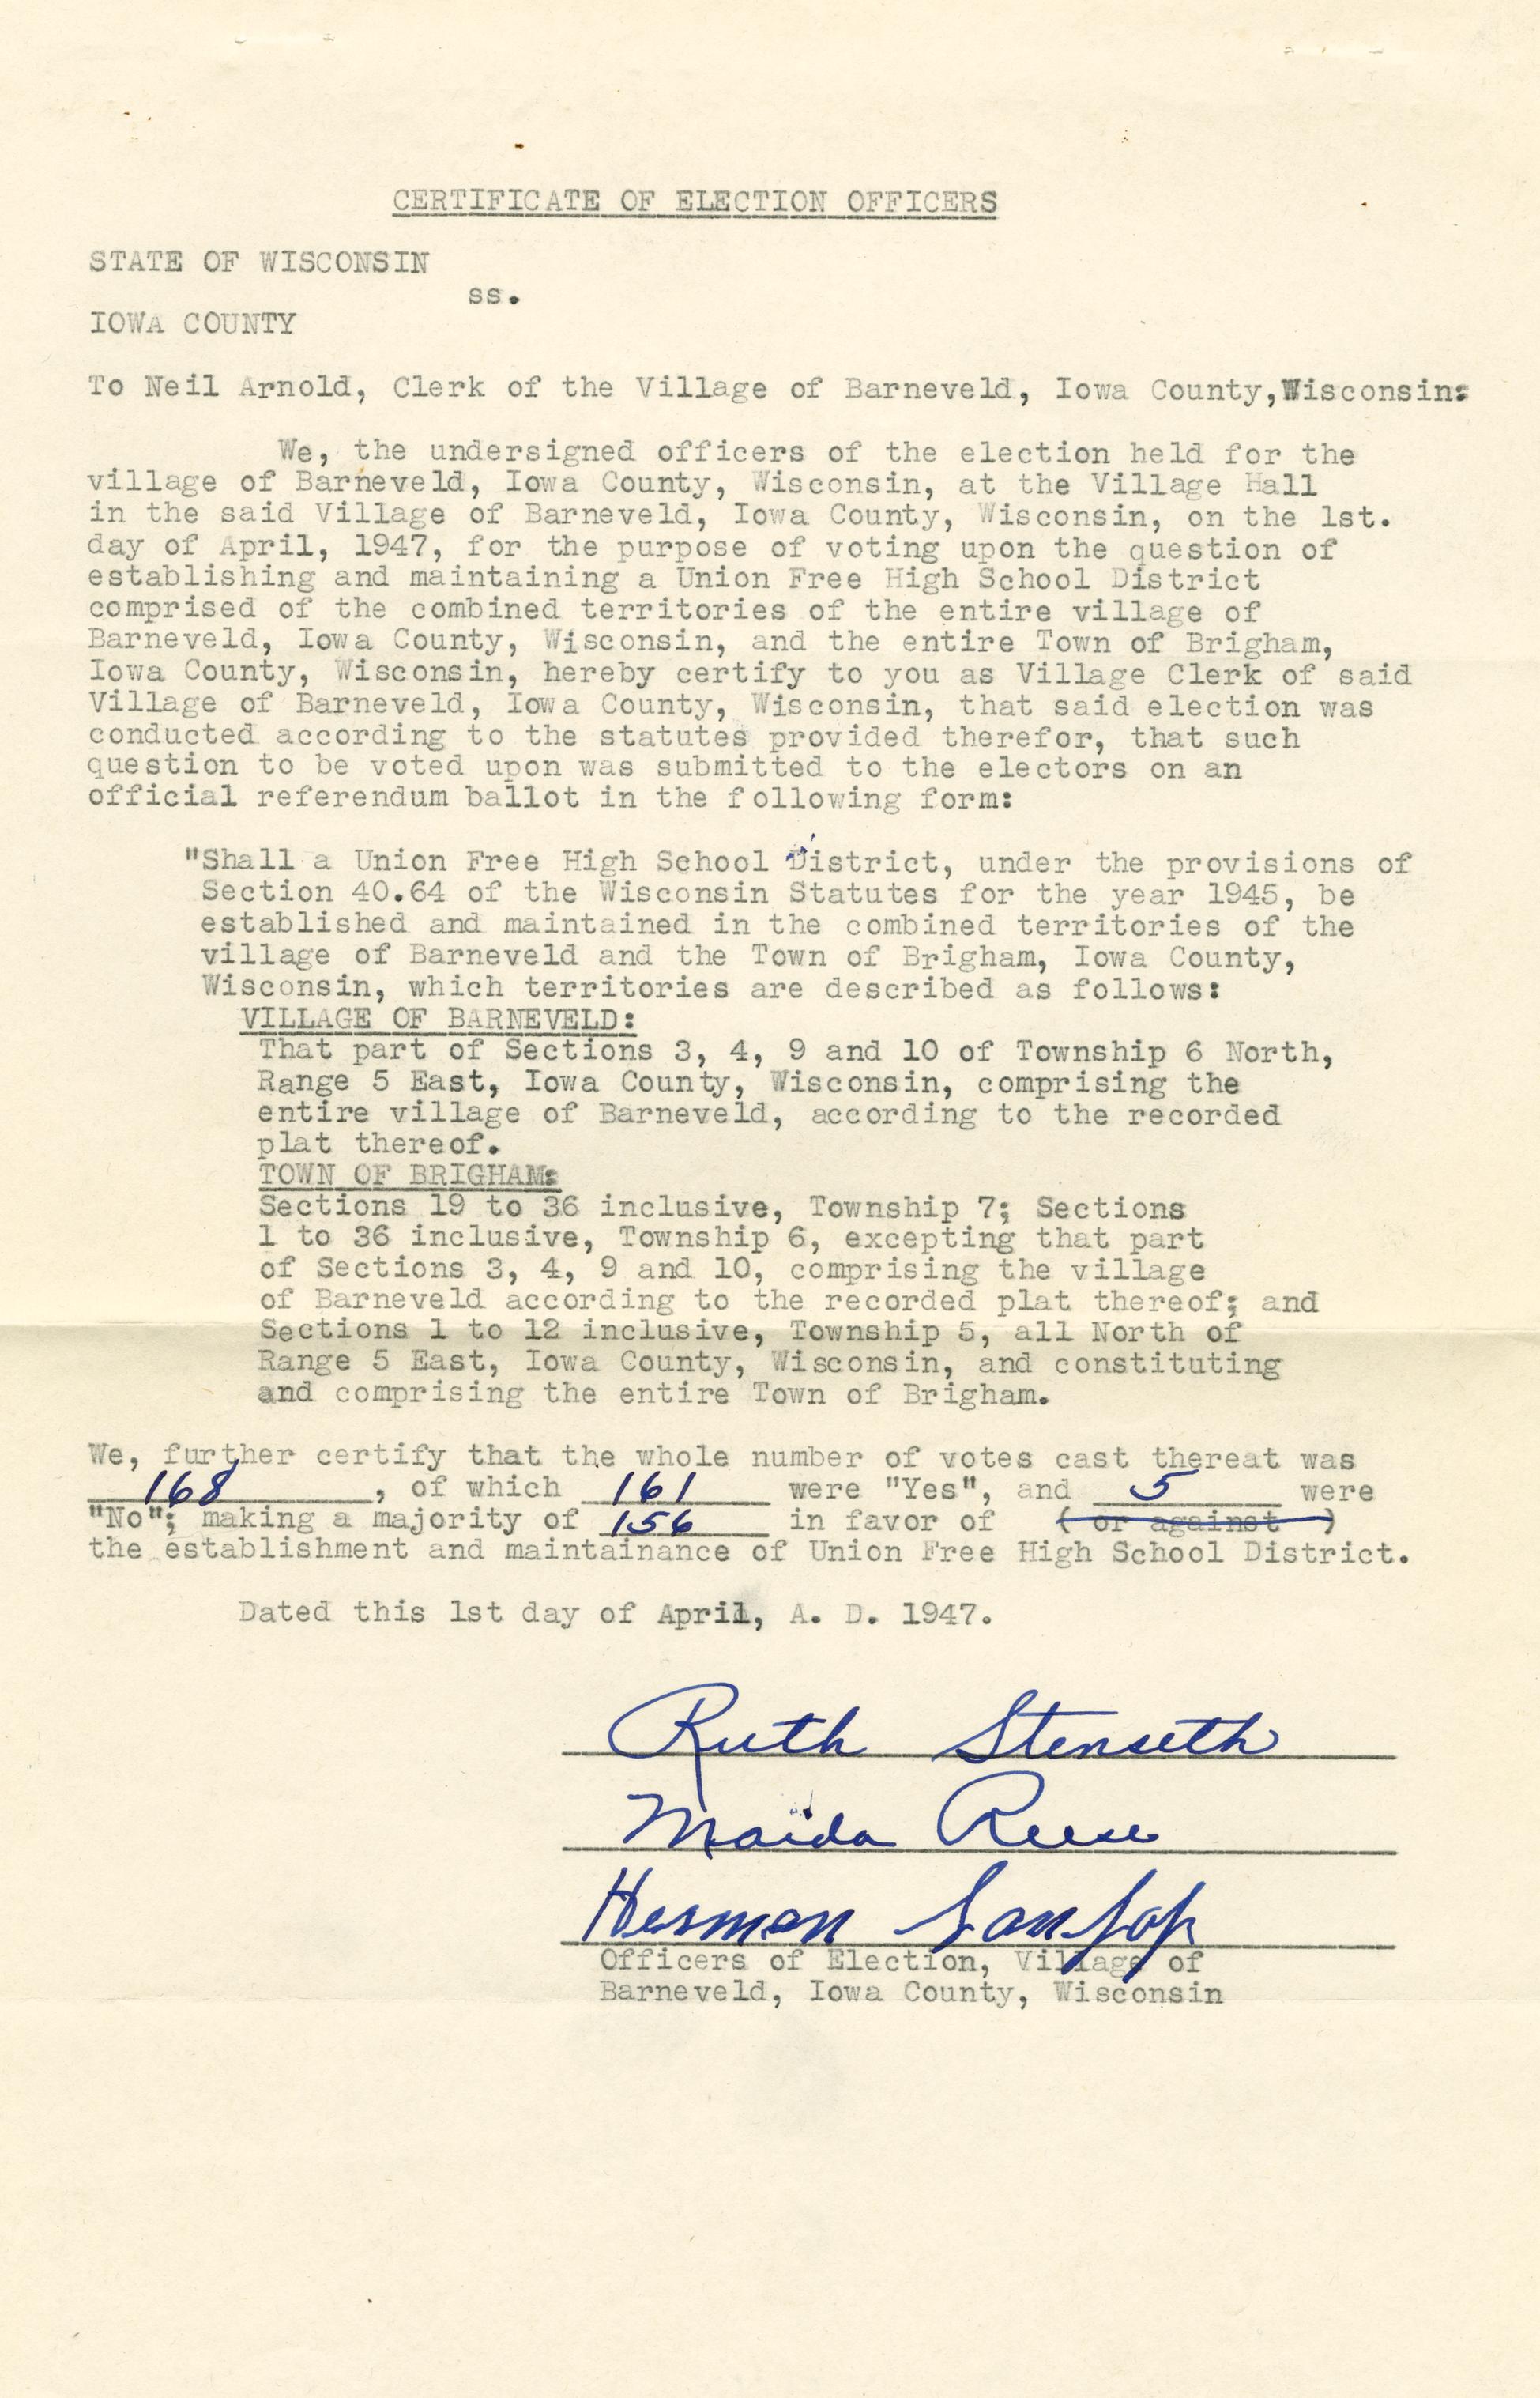 CERTIFICATE OF ELECTION OFFICERS
STATE OF WISCONSIN
ss.
IOWA COUNTY
To Neil Arnold, Clerk of the Village of Barneveld, Iowa County,Wisconsin:
We, the undersigned officers of the election held for the
village of Barneveld, Iowa County, Wisconsin, at the Village Hall
in the said Village of Barneveld, Iowa County, Wisconsin, on the 1st.
day of April, 1947, for the purpose of voting upon the question of
establishing and maintaining a Union Free High School District
comprised of the combined territories of the entire village of
Barneveld, Iowa County, Wisconsin, and the entire Town of Brigham,
Iowa County, Wisconsin, hereby certify to you as Village Clerk of said
Village of Barneveld, Iowa County, Wisconsin, that said election was
conducted according to the statutes provided therefor, that such
question to be voted upon was submitted to the electors on an
official referendum ballot in the following form:
"Shall a Union Free High School District, under the provisions of
Section 40.64 of the Wisconsin Statutes for the year 1945, be
established and maintained in the combined territories of the
village of Barneveld and the Town of Brigham, Iowa County,
Wisconsin, which territories are described as follows:
VILLAGE OF BARNEVELD:
That part of Sections 3, 4, 9 and 10 of Township 6 North,
Range 5 East, Iowa County, Wisconsin, comprising the
entire village of Barneveld, according to the recorded
plat thereof.
TOWN OF BRIGHAM:
Sections 19 to 36 inclusive, Township 7; Sections
1 to 36 inclusive, Township 6, excepting that part
of Sections 3, 4, 9 and 10, comprising the village
of Barneveld according to the recorded plat thereof; and
Sections 1 to 12 inclusive, Township 5, all North of
Range 5 East, Iowa County, Wisconsin, and constituting
and comprising the entire Town of Brigham.
We, further certify that the whole number of votes cast thereat was
168, of which 161 were "Yes", and 5 were
"No"; making a majority of 156 in favor of ( or against )
the establishment and maintainance of Union Free High School District.
Dated this 1st day of April, A. D. 1947.
Ruth Stenseth
Maida Reese
Herman
Officers of Election, Village of
Barneveld, Iowa County, Wisconsin